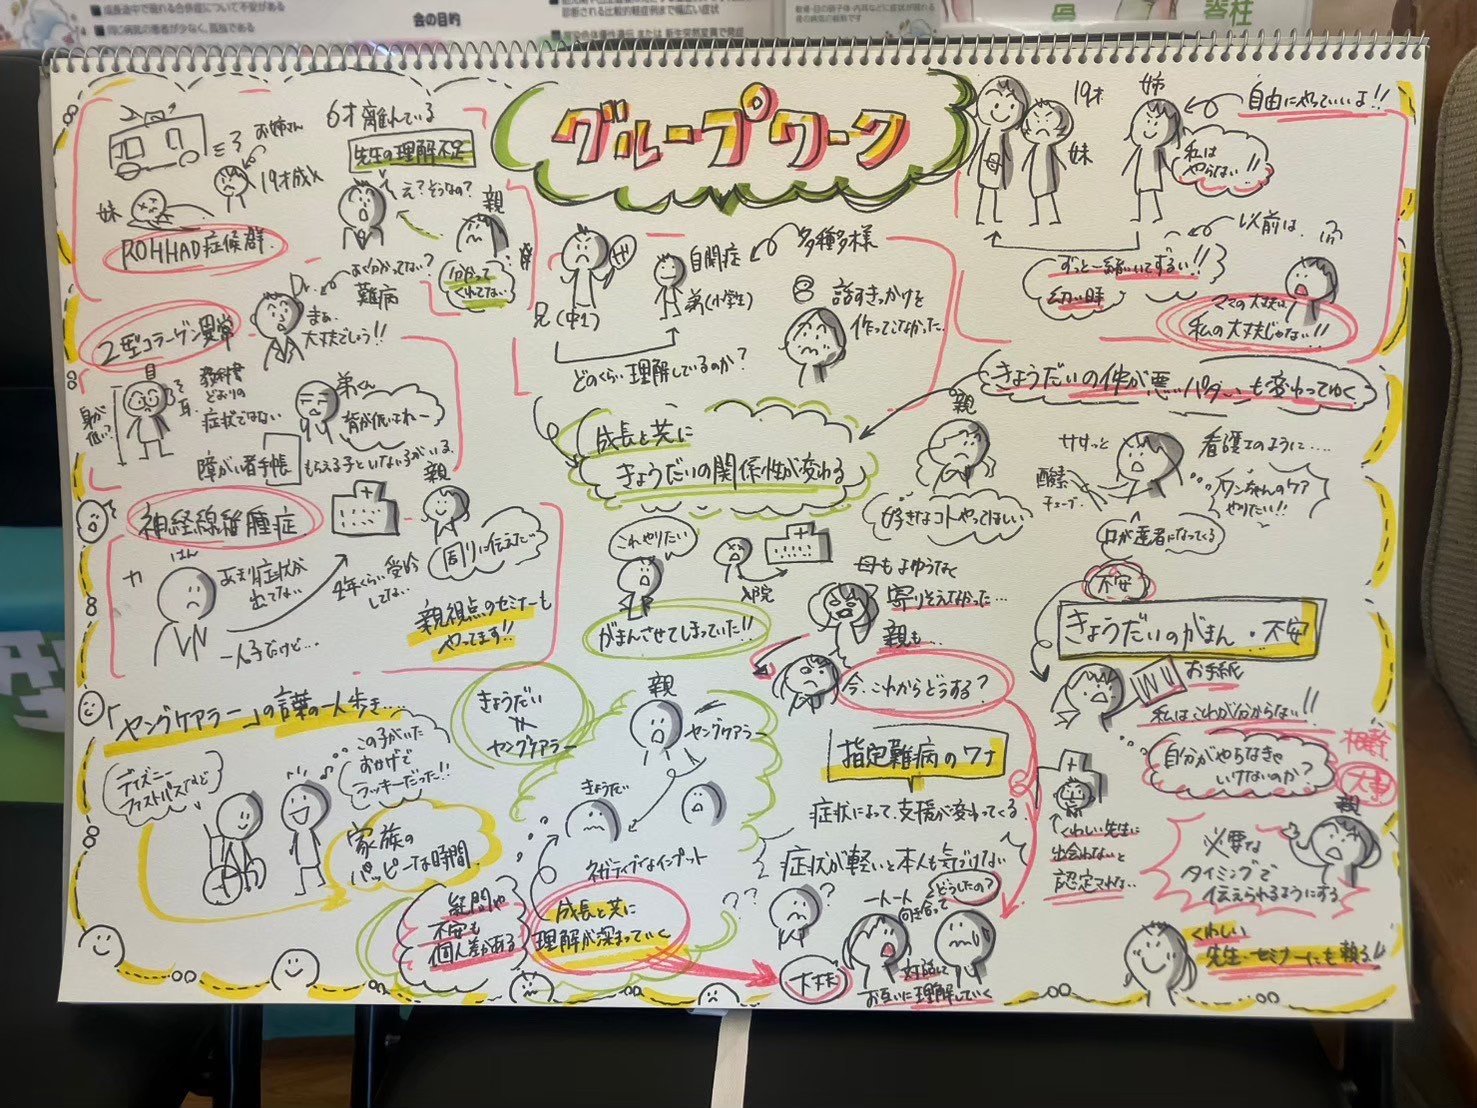 成長途中で現れる合併症について不安がある
同じ病気の患者が少なく、孤独である
会の目的
診断される比較的軽症例まで幅広い症状
骨
脊柱
グループワーク
お姉さん
19才成人
妹
ROHHAD症候群
6才離れている
先生の理解不足
え?そうなの?
親
分かって
くれてない
よく分かってない?
難病
Dr.
まぁ、
大丈夫でしょう!!
2型コラーゲン異常
目
耳
身長
低い?
教科書
どおりの
症状ではない
弟くん
背が低いよれー
障がい者手帳
もらえる子といない子がいる、
神経線維腫症
親
周りに伝えた…
あまり症状が
出てない
4年くらい受診
してない
一人子だけど…
親視点のセミナーも
やってます!!
兄(中1)
自閉症
弟(小学生)
多種多様
話すきっかけを
作ってこなかった
どのくらい理解しているのか?
19才
妹
姉
自由にやっていいよ!!
私は
やらない!!
以前は、
ずっと一緒にいてずるい!!
幼い時
ママの大丈夫は
私の大丈夫じゃない!!
きょうだいの仲が悪いパターンも変わってゆく
成長と共に
きょうだいの関係性が変わる
親
好きなコトやってほしい
ササッと
酸素
チューブ
看護士のように…
ワンちゃんのケア
やりたい!!
口が達者になってくる
これやりたい
入院
がまんさせてしまっていた!!
母もよゆうなく
寄りそえなかった…
親も…
今、これからどうする?
不安
きょうだいのがまん・不安
お手紙
私はこれが分からない!!
自分がやらなきゃ
いけないのか?
相談
大事
親
必要な
タイミングで
伝えられるようにする
くわしい先生に
出会わないと
認定されない…
くわしい
先生・セミナーにも頼る!!
「ヤングケアラー」の言葉の一人歩き…
ディズニー
ファストパスなど
この子がいた
おかげで
ラッキーだった!!
家族の
ハッピーな時間
きょうだい
ヤングケアラー
親
ヤングケアラー
きょうだい
ネガティブなインプット
疑問や
不安も
個人差がある
成長と共に
理解が深まっていく
指定難病のワナ
症状によって、支援が変わってくる
症状が軽いと本人も気づけない
??
??
一人一人
向き合って
どうしたの?
大丈夫
対話して
お互いに理解していく